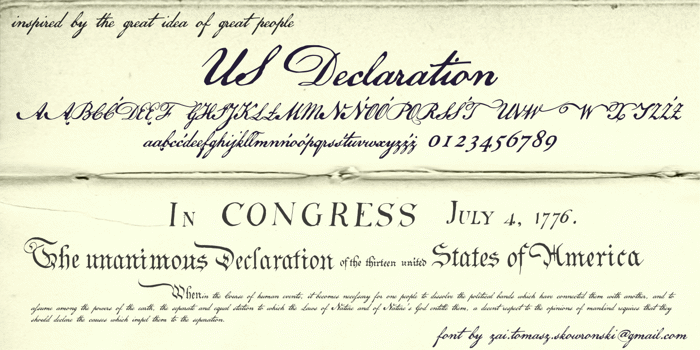 inspired by the great idea of great people
US Declaration
AĄBCĆDEĘF GHIJKLŁMNŃOÓPQRSŚT UVW W X YZŹŻ
aąbcćdeęfghijklłmnńoópqrsśtuvwxyzźż 0123456789
IN CONGRESS JULY 4, 1776.
The unanimous Declaration of the thirteen united States of America
When in the Course of human events, it becomes necessary for one people to dissolve the political bands which have connected them with another, and to
assume among the powers of the earth, the separate and equal station to which the Laws of Nature and of Nature's God entitle them, a decent respect to the opinions of mankind requires that they
should declare the causes which impel them to the separation.
font by zai.tomasz.skowronski@gmail.com